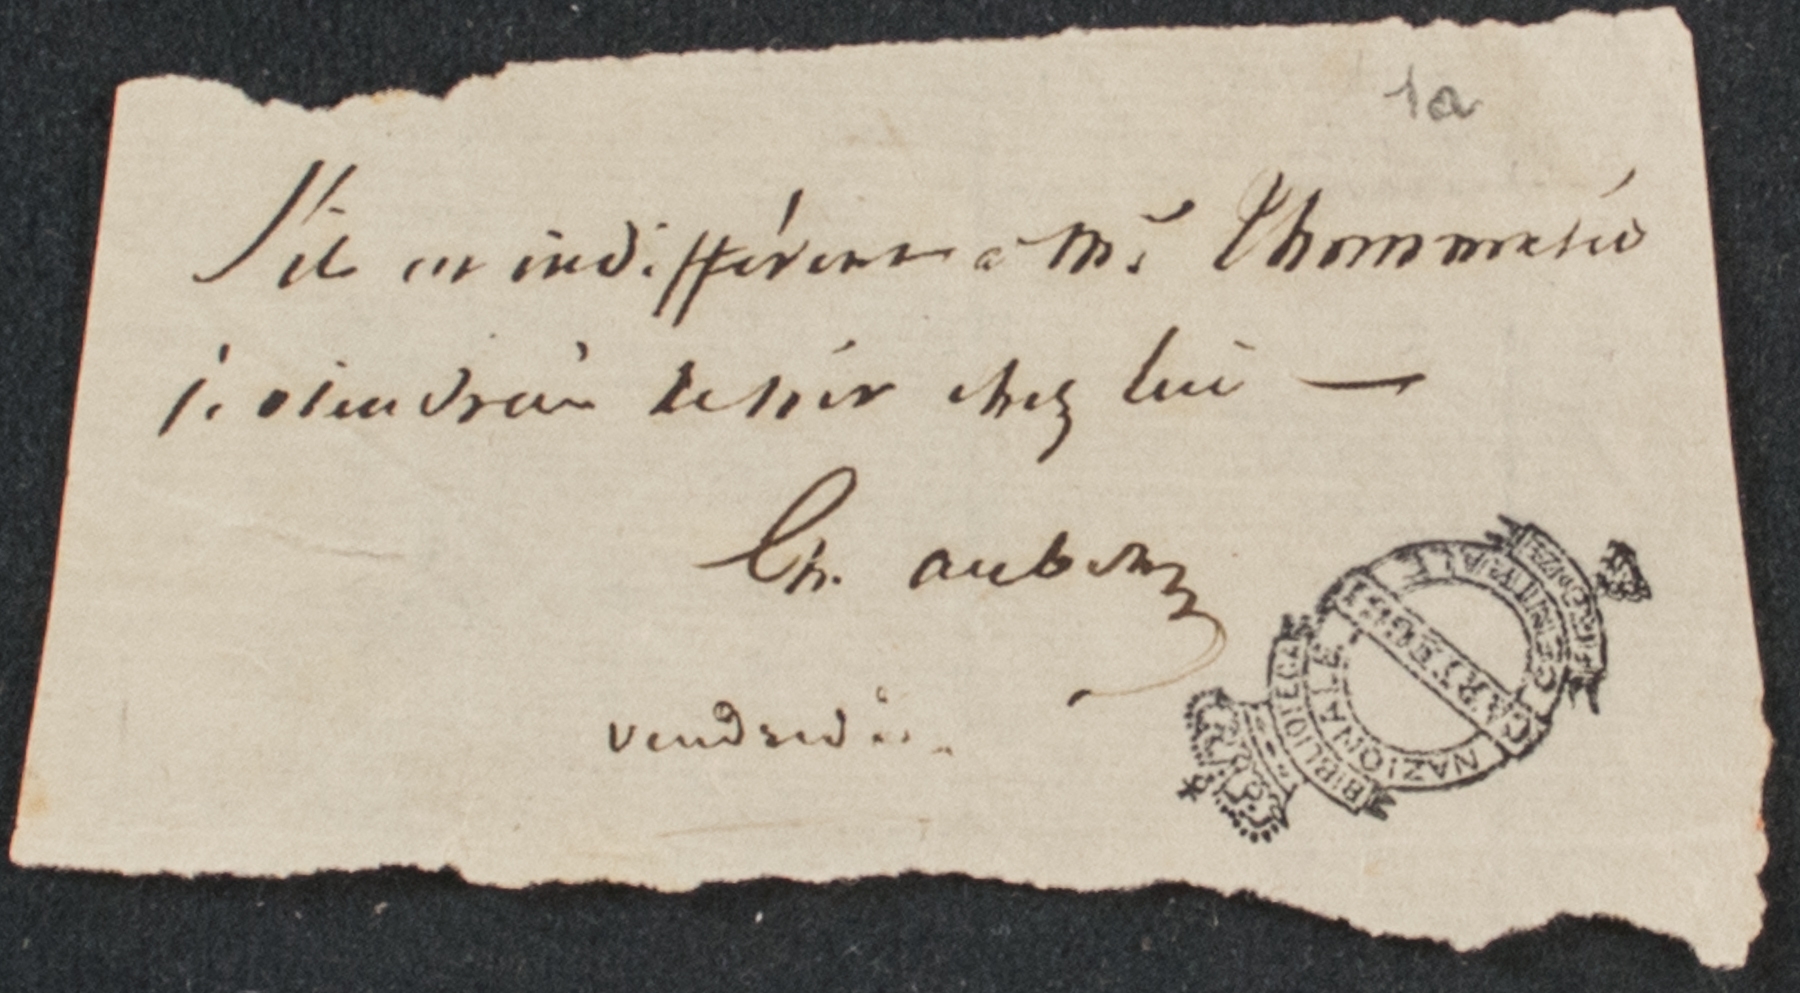 1a
S'il est indifférent à Mr. Thommasée
je viendrai le voir chez lui —
Ch. aubry
vendredi.
BIBLIOTECA NAZIONALE CENTRALE FIRENZE
CARTEGGI